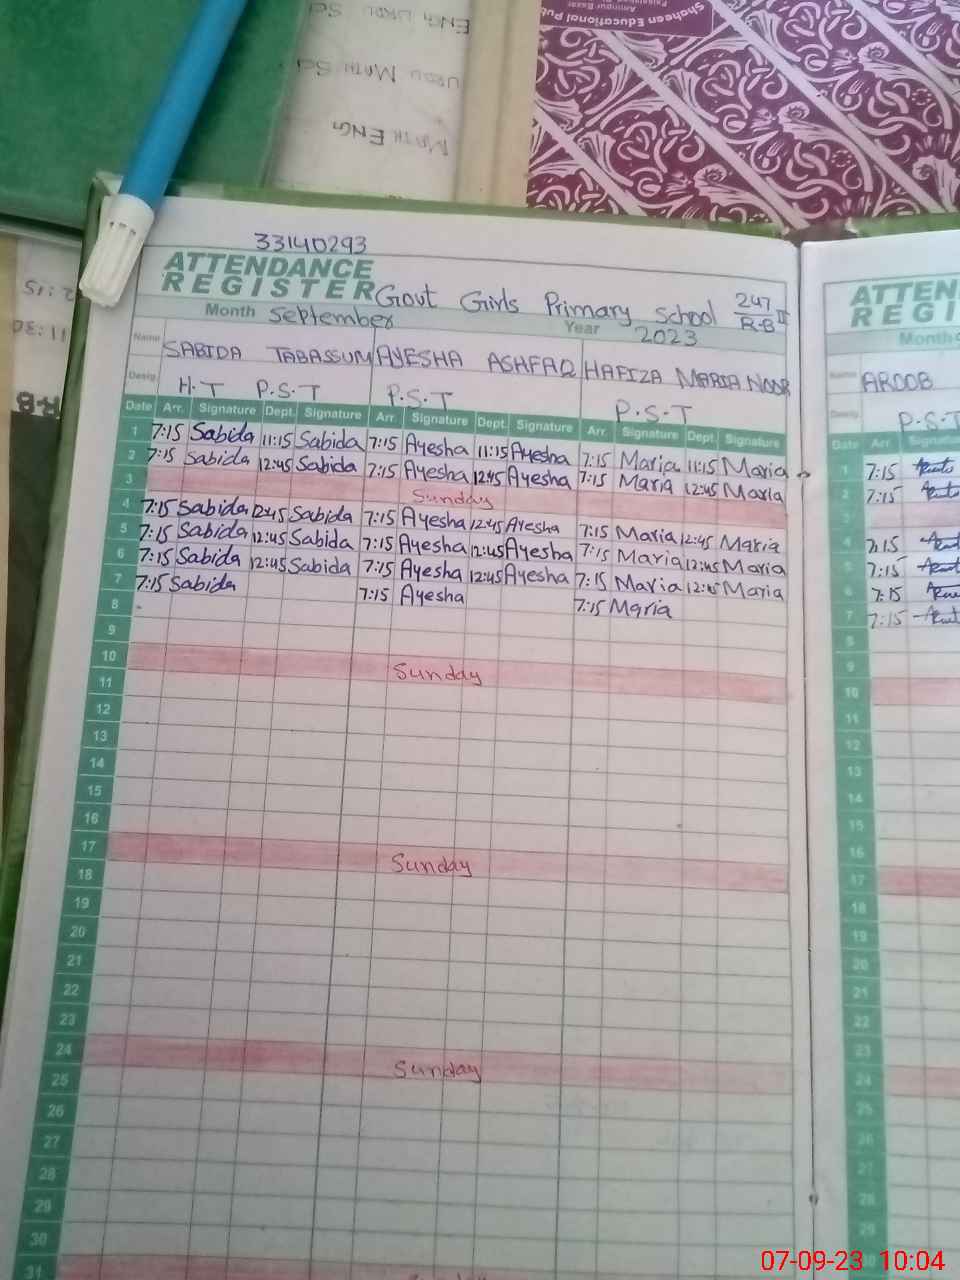 Shaheen Educational Pub
Aminpur Bazar
ENG URDU SC
URDU MATH SCI
MATH ENG
2:15
11:30
R-B
33140293
ATTENDANCE
REGISTER Govt Girls Primary School 247/R-B II
Month September Year 2023
Name SABIDA TABASSUM AYESHA ASHFAQ HAFIZA MARIA NOOR
Desig. H.T P.S.T P.S.T P.S.T
Date Arr. Signature Dept. Signature Arr. Signature Dept. Signature Arr. Signature Dept. Signature
1 7:15 Sabida 11:15 Sabida 7:15 Ayesha 11:15 Ayesha 7:15 Maria 11:15 Maria
2 7:15 Sabida 12:45 Sabida 7:15 Ayesha 12:45 Ayesha 7:15 Maria 12:45 Maria
3 Sunday
4 7:15 Sabida 12:45 Sabida 7:15 Ayesha 12:45 Ayesha 7:15 Maria 12:45 Maria
5 7:15 Sabida 12:45 Sabida 7:15 Ayesha 12:45 Ayesha 7:15 Maria 12:45 Maria
6 7:15 Sabida 12:45 Sabida 7:15 Ayesha 12:45 Ayesha 7:15 Maria 12:45 Maria
7 7:15 Sabida 7:15 Ayesha 7:15 Maria
8
9
10 Sunday
11
12
13
14
15
16
17 Sunday
18
19
20
21
22
23
24 Sunday
25
26
27
28
29
30
31
ATTEN
REGI
Month
Name AROOB
Desig. P.S.T
Date Arr. Signatu
1 7:15
2 7:15
3
4 7:15
5 7:15
6 7:15
7 7:15
8
9
10
11
12
13
14
15
16
17
18
19
20
21
22
23
24
25
26
27
28
29
30
07-09-23 10:04